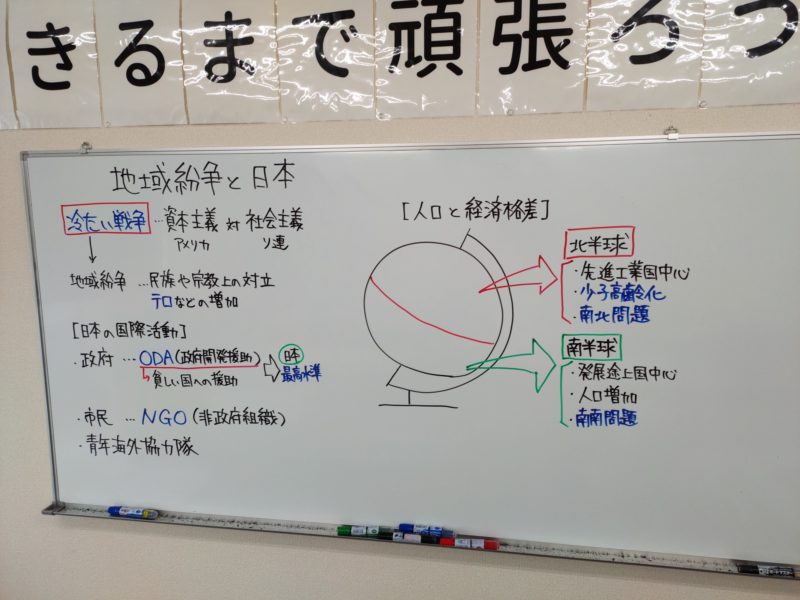 きるまで頑張ろう
地域紛争と日本
冷たい戦争 …資本主義 対 社会主義
アメリカ ソ連
↓
地域紛争 …民族や宗教上の対立
テロなどの増加
[日本の国際活動]
・政府 …ODA(政府開発援助) ⇨ 日本
↳貧しい国への援助 最高水準
・市民 …NGO(非政府組織)
・青年海外協力隊
[人口と経済格差]
北半球
・先進工業国中心
・少子高齢化
・南北問題
南半球
・発展途上国中心
・人口増加
・南南問題